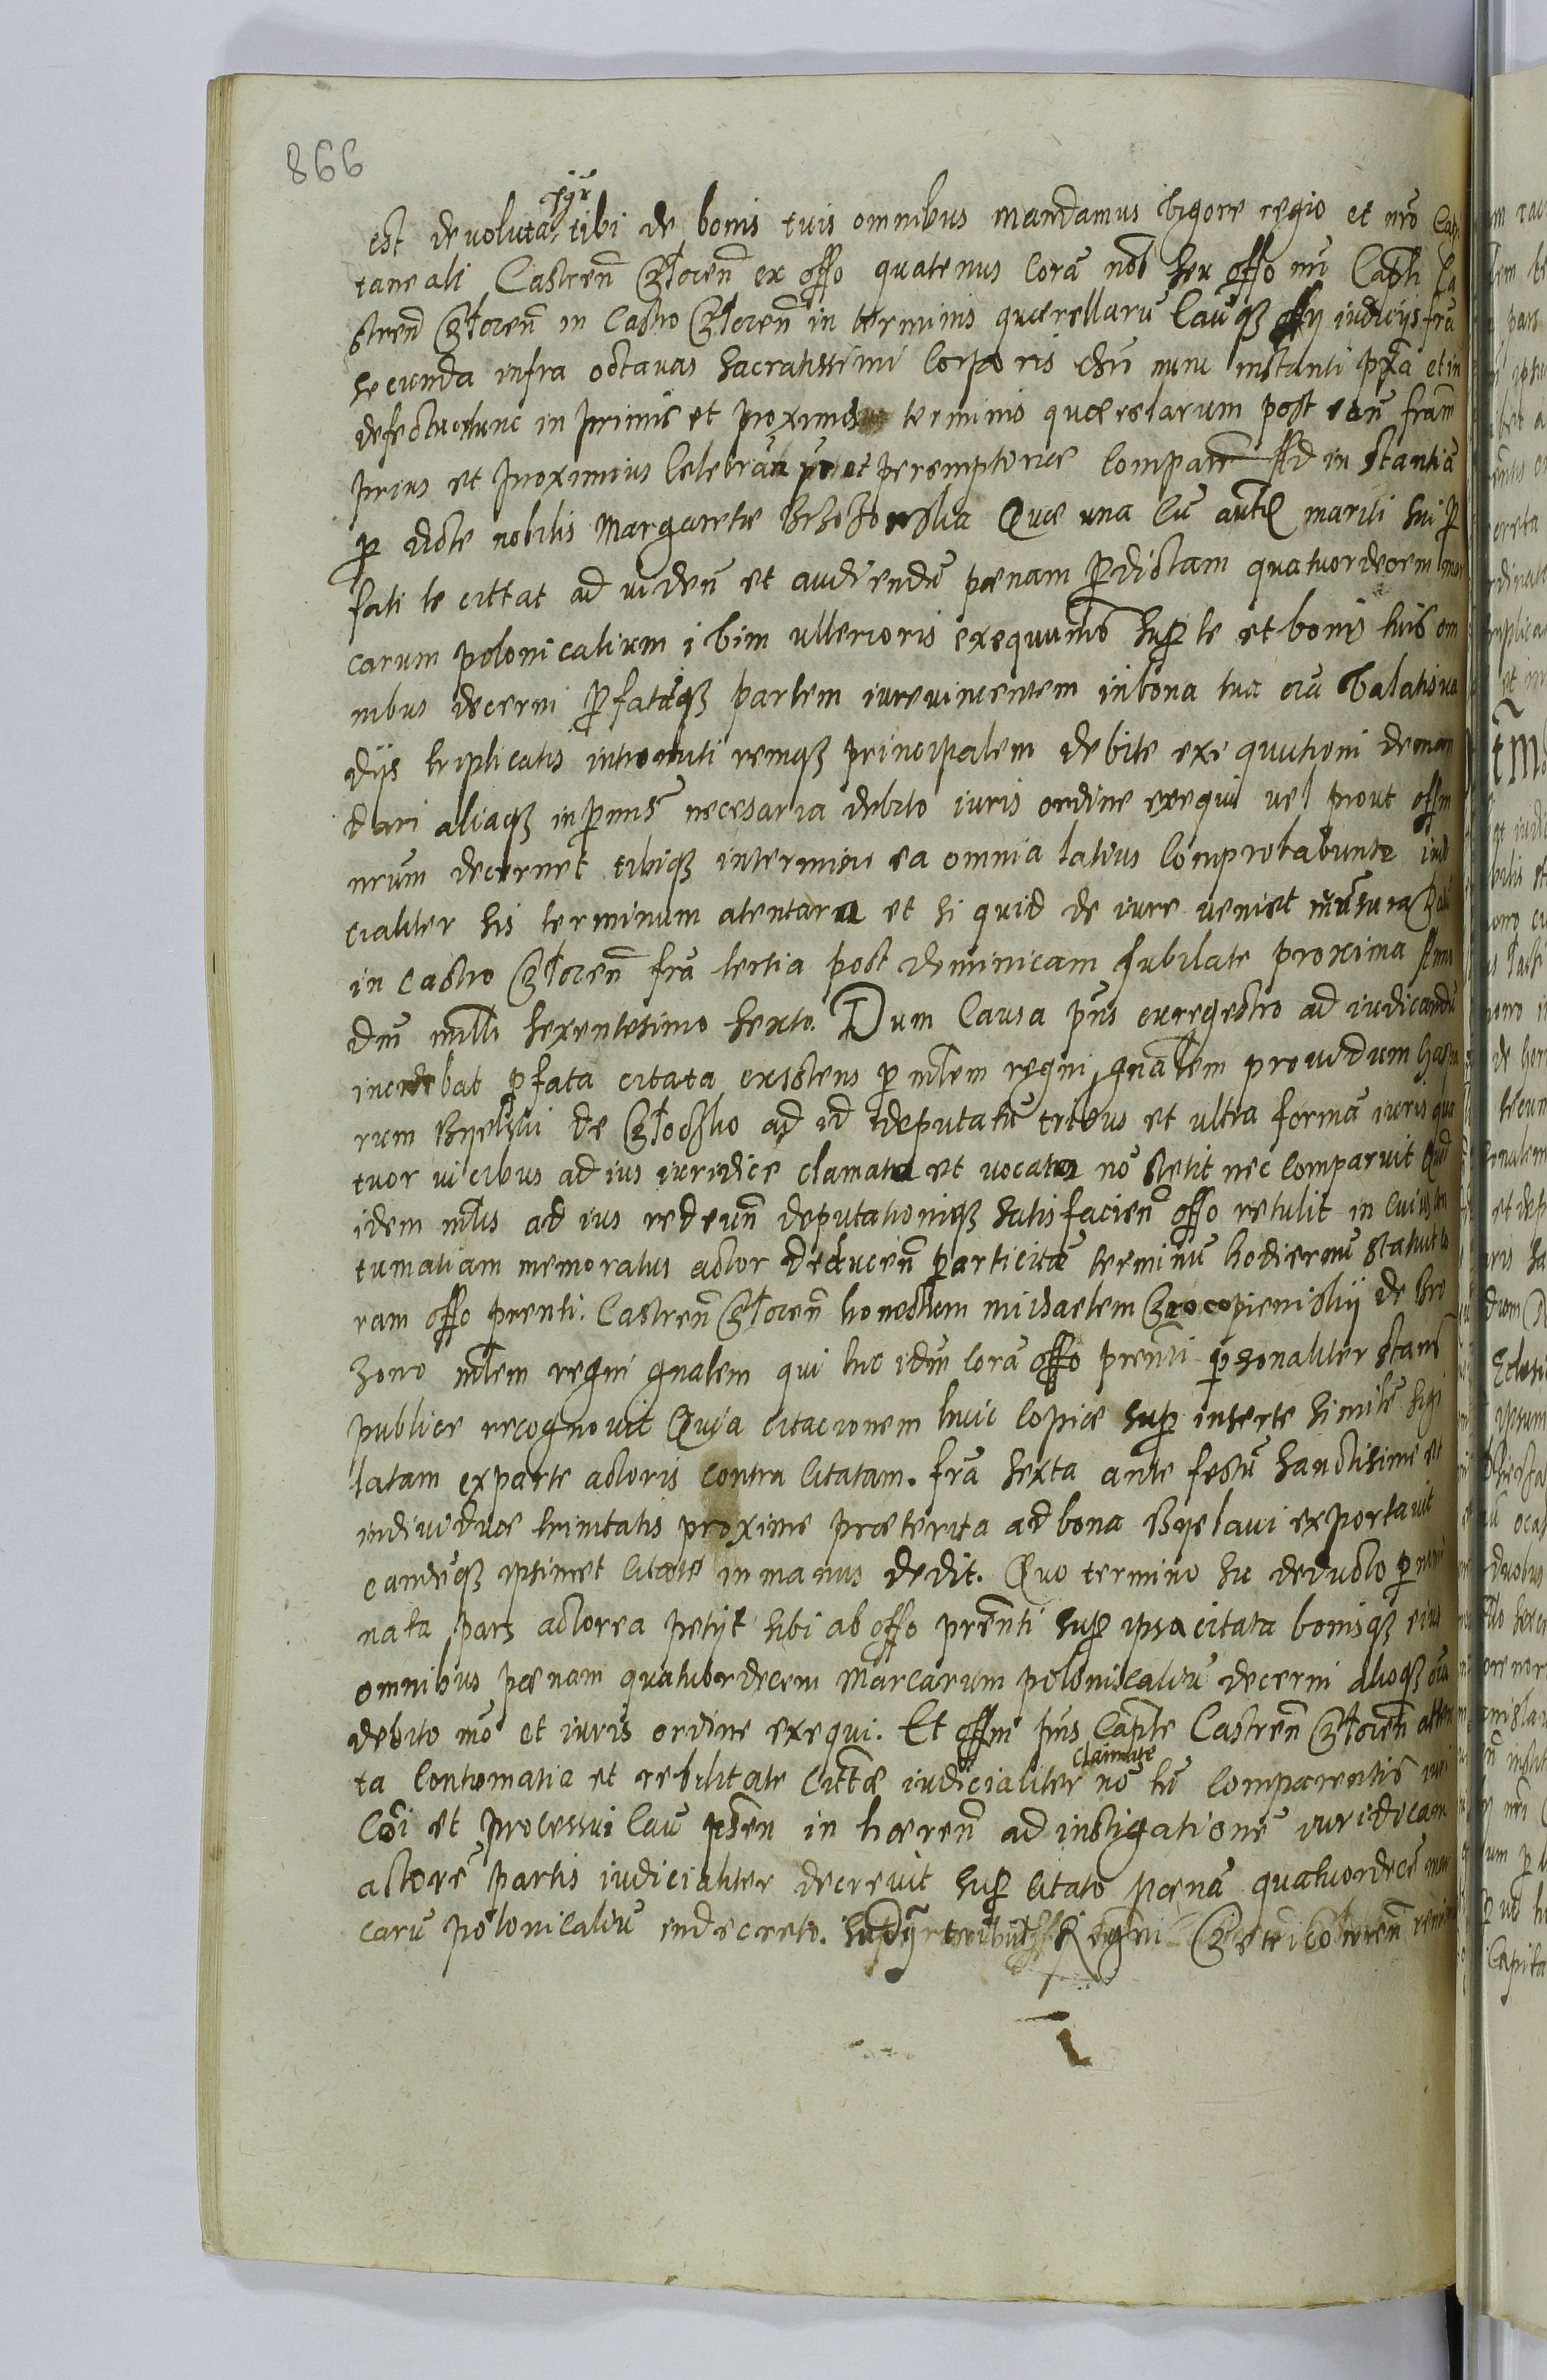 866
est devoluta tibi de bonis tuis omnibus mandamus vigore regio et nro Capi
taneali Castren̄ Złocien̄ ex offo quatenus corā nob seu offo nri Capli Ca
stren̄ Złocien̄ in Castro Złocien̄ in terminis quærellarū Cauq; offy iudicijs frā
secunda infra octavas sacratissimi Corporis Chri nunc instanti pxa et in
defectu tunc in primis et proximis terminis quærelarum post ean̄ fram
prius et proximius Celebran̄ et peremptorie Comparen̄ Ad instantiā
p dicte nobilis Margaretæ Quæ una Cū mariti sui p
fati te cittat ad viden̄ et audiendū pænam pdictam quatuordecem mar
carum polonicalium ibim ullerioris exequumō sup te et bonis tuis om
nibus decerni pfatāq; partem iurevincentem in bona tua oia valatis va
dijs triplicatis intromitti remq; principalem debite exequutioni deman
dari aliaq; in pmis necesaria debito iuris ordine exequi vel prout offm
nrum decernet tibiq; in termino ea omnia latius Comprobabuntr iudi
cialiter sis terminum atentara et si quid de iure veniet
in castro Złocien̄ frā tertia post dominicam Jubilate proxima Anno
dni milli sexentesimo sexto. Dum Causa pns ex regestro ad iudicandū
incidebat pfata citata existens p mlem regni gnalem providum Gaspa
rum de ad id deputatū tribus et ultra formā iuris qua
tuor vicibus ad ius iuridice clamata et vocata nō stetit nec Comparuit Qud
idem mlis ad ius redeun̄ deputationiq; satisfacien̄ offo retulit in cuius con
tumatiam memoratus actor deducen̄ particitæ terminū hodiernū statuit co
ram offo prenti Castren̄ Złocien̄ honestum de Bro
zowo mlem regni gnalem qui hic idm corā offo prenti psonaliter stans
publice recognovit Quia Citacionem huic Copiæ sup inserte similē sigi
latam ex parte actoris contra Citatam. frā sexta ante festū sanctisime et
individuæ trinitatis proxime præterita ad bona Byelawi exportavit
eandēq; ipsimet Citate in manus dedit. Quo termino sic deducto p nomi
nata pars actorea petijt sibi ab offo prenti sup ipsa citata bonisq; eius
omnibus pænam quatuordecem Marcarum polonicaliū decerni alioq; oia
debito mō et iuris ordine exequi. Et offm pns Capłe Castren̄ Złocien̄ atten
ta Contumatia et rebilitate Cittæ iudicialiter Clamate nō tn̄ Comparentis iuri
Cōi et processui Cau in hæren̄ ad instigationē iuridicam
actoreæ partis iudicialiter decrevit sup citato pænā quatuordecē mar
carū polonicaliū in decreto.